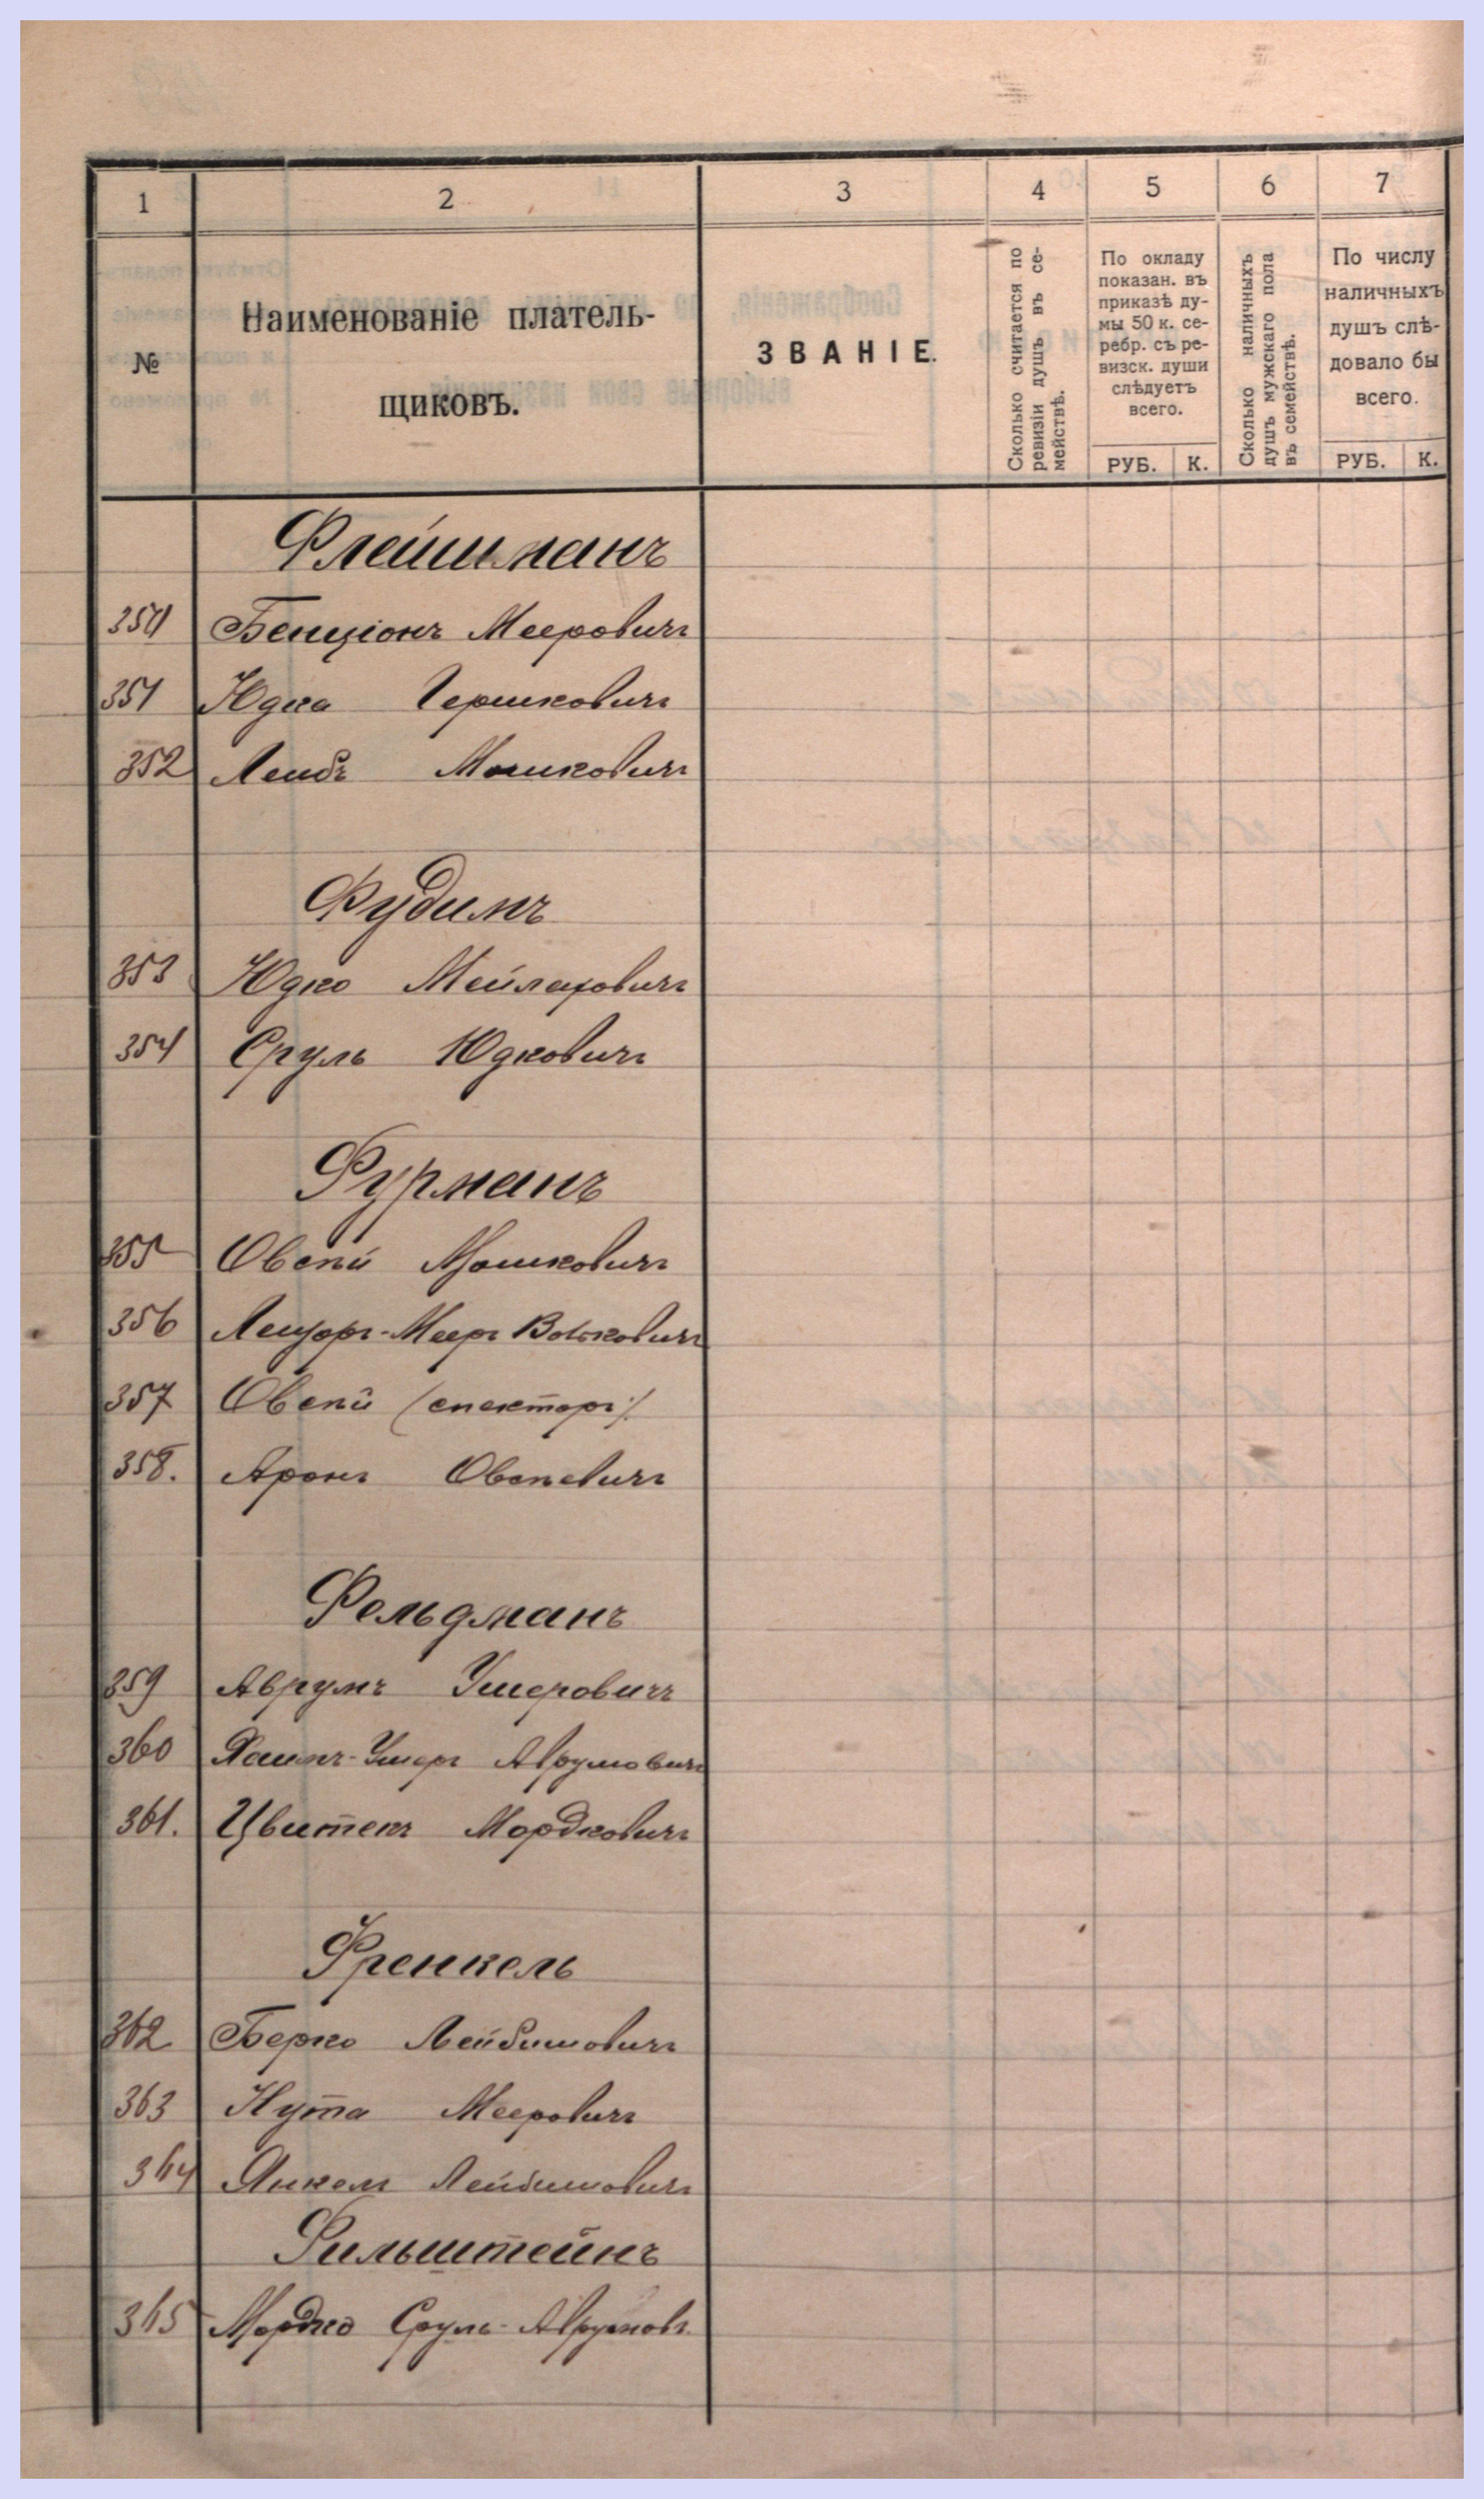 1 2 3 4 5 6 7
№
Наименованіе платель-
щиковъ.
ЗВАНІЕ.
Сколько считается по
ревизіи душъ въ се-
мействѣ.
По окладу
показан. въ
приказѣ ду-
мы 50 к. се-
ребр. съ ре-
визск. души
слѣдуетъ
всего.
РУБ. К.
Сколько наличныхъ
душъ мужскаго пола
въ семействѣ.
По числу
наличныхъ
душъ слѣ-
довало бы
всего.
РУБ. К.
Флейшманъ
350 Бенціонъ Мееровичъ
351 Юдка Гершковичъ
352 Леибъ Мошковичъ
Фудимъ
353 Юдко Мейлаховичъ
354 Сруль Юдковичъ
Фурманъ
355 Овсей Мошковичъ
356 Лейзоръ-Мееръ Вольковичъ
357 Овсей (спекторъ)
358. Аронъ Овсеевичъ
Фельдманъ
359 Аврумъ Ушеровичъ
360 Хаимъ-Ушеръ Аврумовичъ
361. Цвитенъ Мордковичъ
Френкель
362 Берко Лейбишовичъ
363 Нута Мееровичъ
364 Янкель Лейбишовичъ
Фильштейнъ
365 Мордко Сруль-Аврумовъ